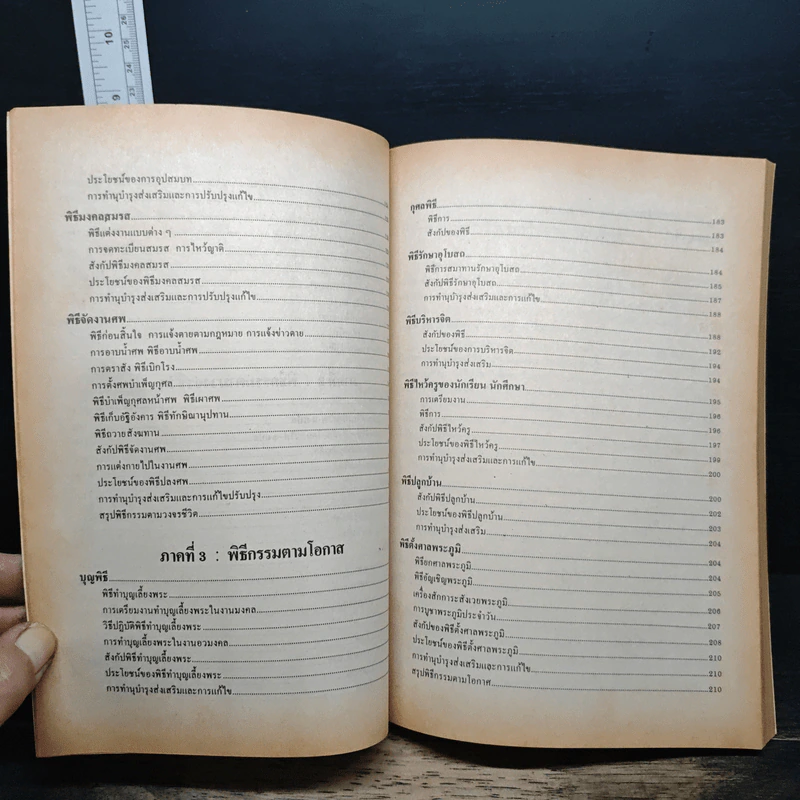 10
9
26
25
24
23
ประโยชน์ของการอุปสมบท
การทำนุบำรุงส่งเสริมและการปรับปรุงแก้ไข
พิธีมงคลสมรส
พิธีแต่งงานแบบต่าง ๆ
การจดทะเบียนสมรส การไหว้ญาติ
สังกัปพิธีมงคลสมรส
ประโยชน์ของพิธีมงคลสมรส
การทำนุบำรุงส่งเสริมและการปรับปรุงแก้ไข
พิธีจัดงานศพ
พิธีก่อนสิ้นใจ การแจ้งตายตามกฎหมาย การแจ้งข่าวตาย
การอาบน้ำศพ พิธีอาบน้ำศพ
การตราสัง พิธีเบิกโรง
การตั้งศพบำเพ็ญกุศล
พิธีบำเพ็ญกุศลหน้าศพ พิธีเผาศพ
พิธีเก็บอัฐิอังคาร พิธีทักษิณานุปทาน
พิธีถวายสังฆทาน
สังกัปพิธีจัดงานศพ
การแต่งกายไปในงานศพ
ประโยชน์ของพิธีปลงศพ
การทำนุบำรุงส่งเสริมและการแก้ไขปรับปรุง
สรุปพิธีกรรมตามวงจรชีวิต
ภาคที่ 3 : พิธีกรรมตามโอกาส
บุญพิธี
พิธีทำบุญเลี้ยงพระ
การเตรียมงานทำบุญเลี้ยงพระในงานมงคล
วิธีปฏิบัติพิธีทำบุญเลี้ยงพระ
การทำบุญเลี้ยงพระในงานอวมงคล
สังกัปพิธีทำบุญเลี้ยงพระ
ประโยชน์ของพิธีทำบุญเลี้ยงพระ
การทำนุบำรุงส่งเสริมและการแก้ไข
กุศลพิธี 183
พิธีการ 183
สังกัปของพิธี 184
พิธีรักษาอุโบสถ 184
พิธีการสมาทานรักษาอุโบสถ 185
สังกัปพิธีรักษาอุโบสถ 187
การทำนุบำรุงส่งเสริมและการแก้ไข 188
พิธีบริหารจิต 188
สังกัปของพิธี 192
ประโยชน์ของการบริหารจิต 194
การทำนุบำรุงส่งเสริม 194
พิธีไหว้ครูของนักเรียน นักศึกษา 195
การเตรียมงาน 196
พิธีการ 196
สังกัปพิธีไหว้ครู 197
ประโยชน์ของพิธีไหว้ครู 199
การทำนุบำรุงส่งเสริมและการแก้ไข 200
พิธีปลูกบ้าน 200
สังกัปพิธีปลูกบ้าน 202
ประโยชน์ของพิธีปลูกบ้าน 203
การทำนุบำรุงส่งเสริม 204
พิธีตั้งศาลพระภูมิ 204
พิธียกศาลพระภูมิ 204
พิธีอัญเชิญพระภูมิ 205
เครื่องสักการะสังเวยพระภูมิ 206
การบูชาพระภูมิประจำวัน 207
สังกัปของพิธีตั้งศาลพระภูมิ 208
ประโยชน์ของพิธีตั้งศาลพระภูมิ 210
การทำนุบำรุงส่งเสริมและการแก้ไข 210
สรุปพิธีกรรมตามโอกาส